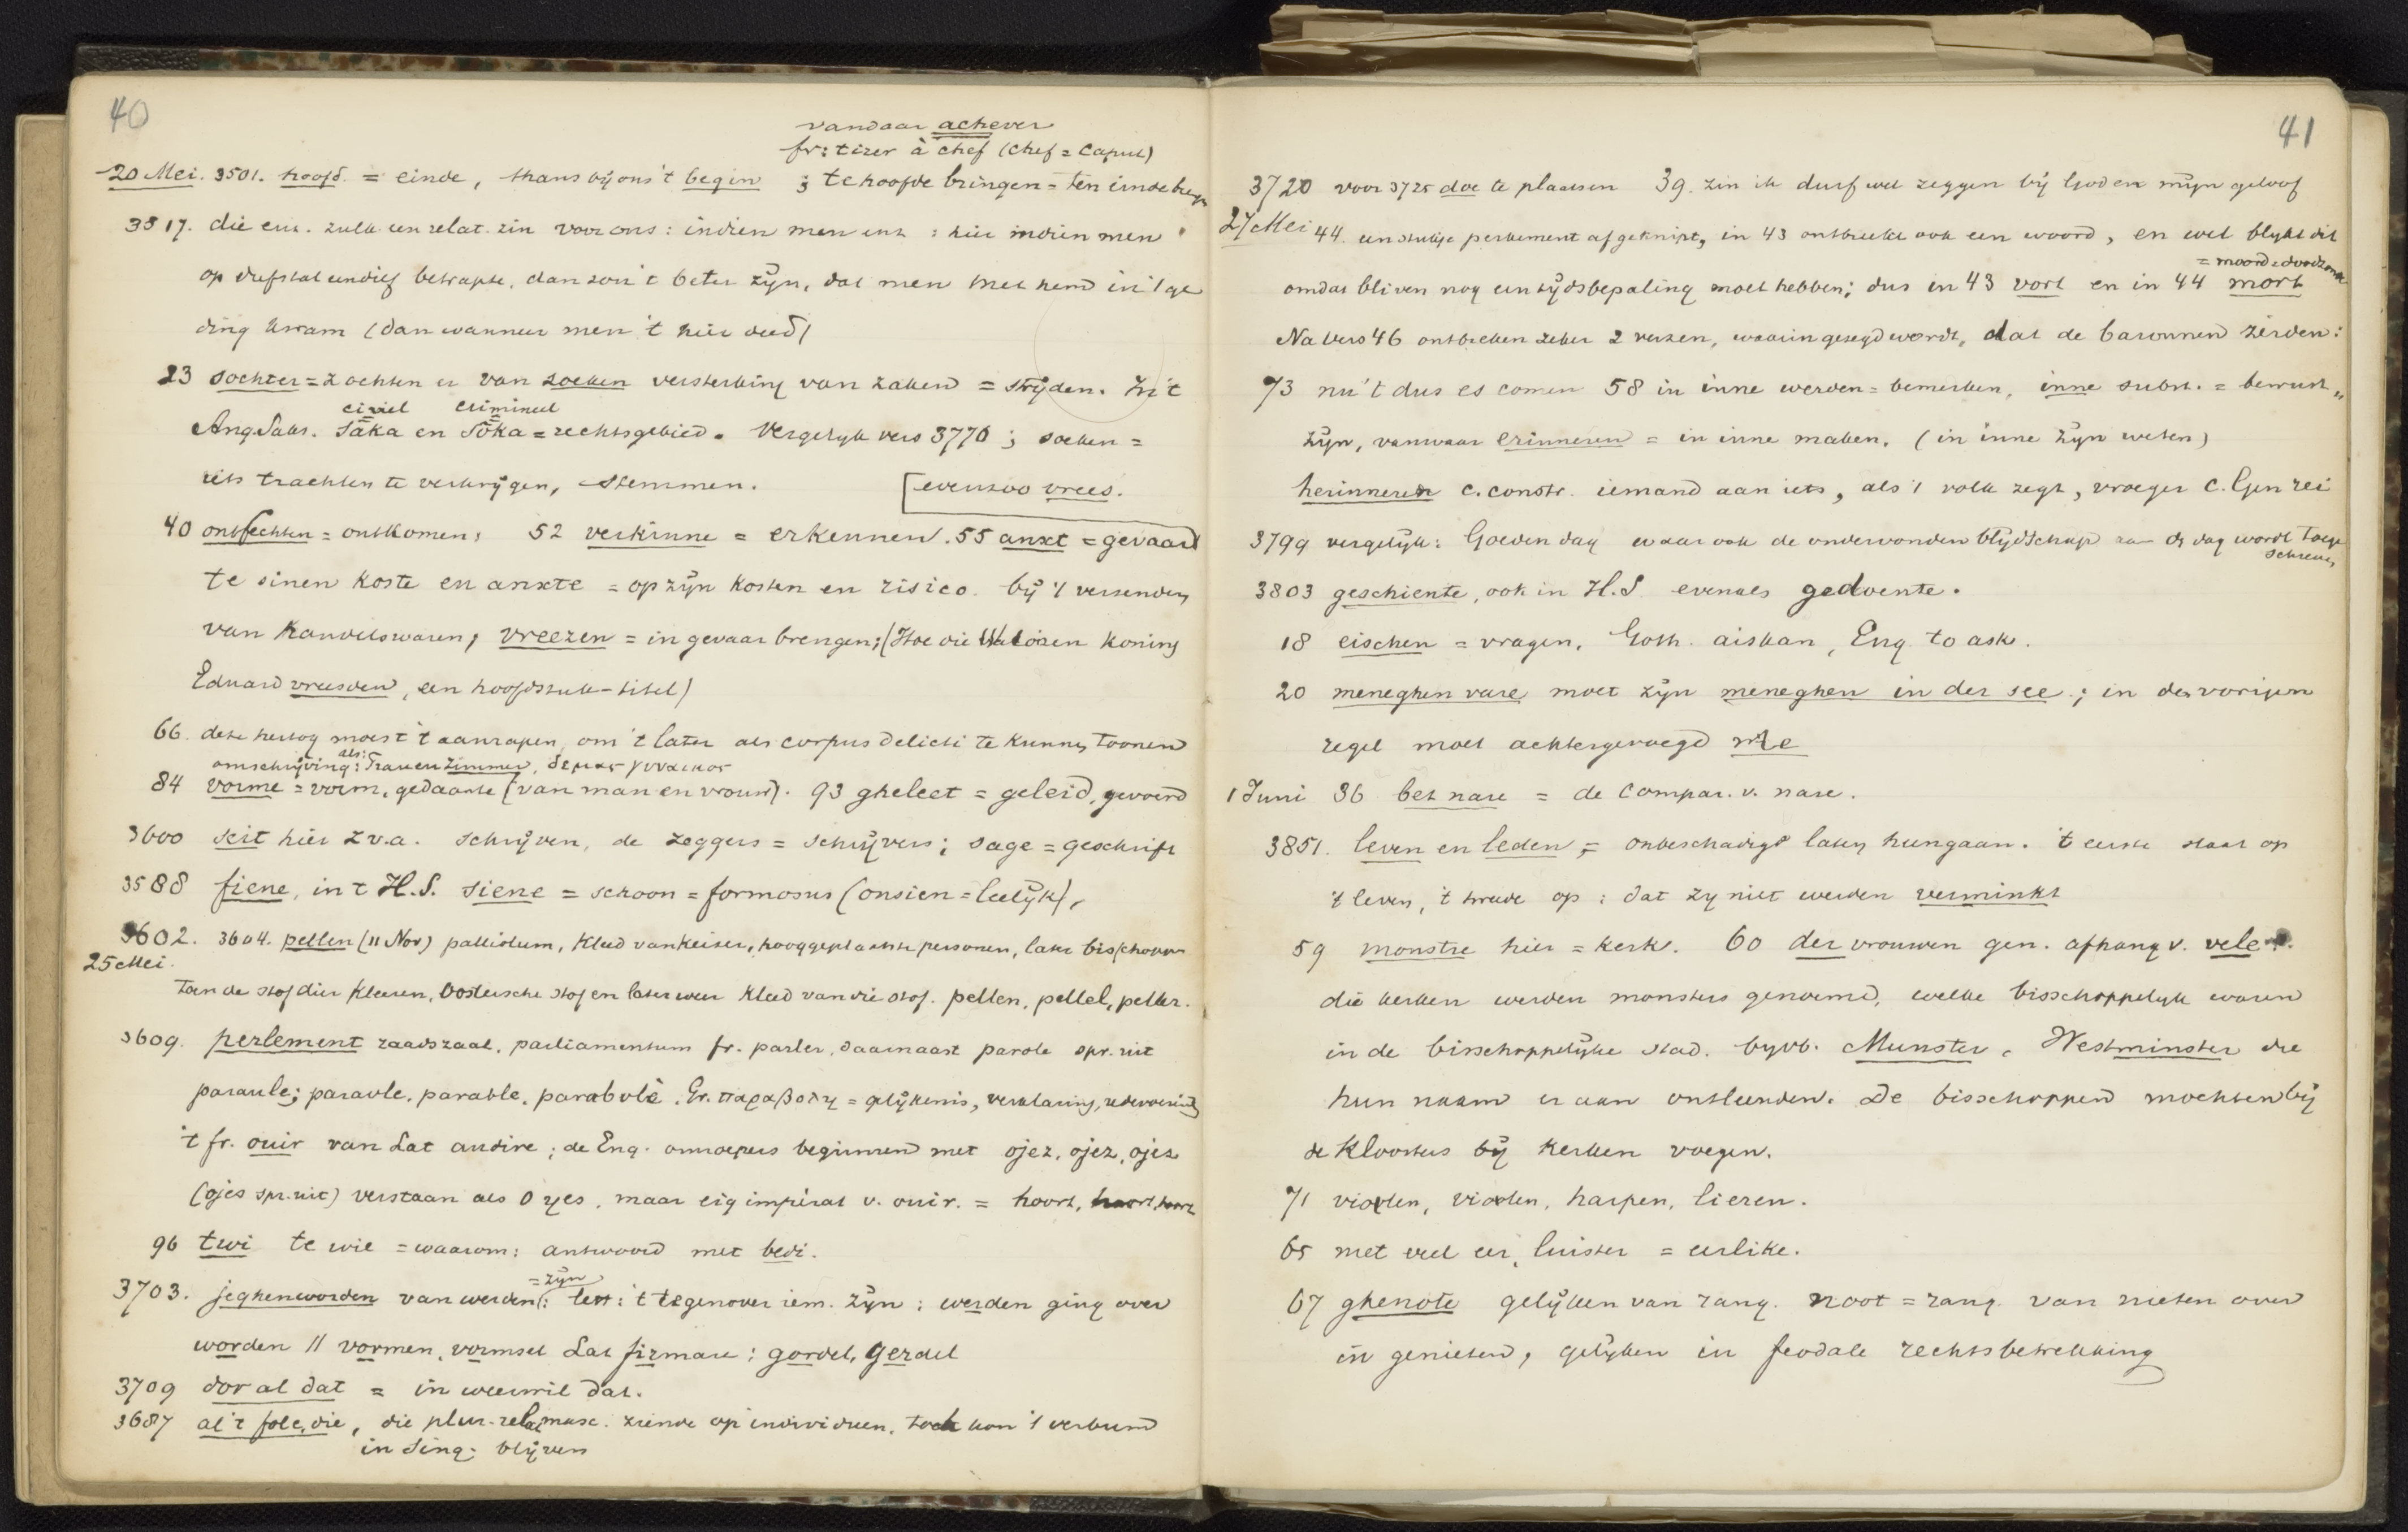 40
vandaar achever
fr: tirer à chef (chef = caput)
20 Mei. 3501. hoofd. = einde, thans bij ons 't begin ; te hoofde bringen = ten einde
3517. die enz. zulk een relat. zin voor ons: indien men enz : hier indien men
op diefstal eendief betrapte, dan zou 't beter zijn, dat men met hem in 't ge
ding kwam (dan wanneer men 't hier deed)
23 sochter = zochten er van soeken versterking van zaken = strijden. In 't
civiel crimineel
Ang. Saks. sāka en sōka = rechtsgebied. Vergelijk vers 3770; soeken =
iets trachten te verkrijgen, stemmen. [evenzoo vrees.
40 ontfechten = ontkomen; 52 verkinne = erkennen. 55 anxt = gevaar
te sinen koste en anxte = op zijn kosten en risico. bij 't verzenden
van handelswaren; vreezen = in gevaar brengen; (Hoe die koning
Eduard vreesden, een hoofdstuk-titel)
66. deze hertog moest 't aanrapen, om 't later als corpus delicti te kunnen toonen
omschrijving: als: Frauenzimmer, δεμας γυναικος
84 vorme = vorm, gedaante (van man en vrouw). 93 gheleet = geleid, gevoerd
3600 seit hier z.v.a. schrijven, de zeggers = schrijvers; sage = geschrift
3588 fiene, in 't H.S. siene = schoon = formosus (onsien = leelijk),
3602. 3604. pellen (11 Nov) palliolum, kleed van keizer, hooggeplaatste personen, later bisschoppen
25 Mei.
Toen de stof dier kleeren, Oostersche stof en later weer kleed van die stof. pellen, pellel, peller.
3609. perlement raadszaal, parliamentum fr. parler, daarnaast parole spr. uit
paraule; paraole, parable, parabolè. Gr. παραβολη = gelijkenis, verklaring, redevoering
't fr. ouir van Lat audire; de Eng. omroepers beginnen met ojez, ojez, ojez
(ojes spr. uit) verstaan als O yes, maar eig imperat v. ouir. = hoort, hoort, hoort
96 twi te wie = waarom: antwoord met bedi.
= zijn
3703. jeghenworden van werden: 't tegenover iem. zijn; werden ging over
worden // vormen, vormsel Lat firmare; gordel, gerdel
3709 dor al dat = in weerwil dat.
3687 al 't folc, die, die plur. relat masc. ziende op individuen, toch kon 't verbum
in sing. blijven
41
3720 voor 3725 doe te plaatsen 39. zin ik durf wel zeggen bij God en mijn geloof
27 Mei 44. een stukje perkement afgeknipt, in 43 ontbreekt ook een woord, en wel blijkt dit
= moord = doodzonde
omdat bliven nog een tijdsbepaling moet hebben; dus in 43 vort en in 44 mort
Na vers 46 ontbreken zeker 2 verzen, waarin gezegd wordt, dat de baronnen zeiden:
73 nu 't dus es comen 58 in inne werden = bemerken, inne subst. = bewust„
zijn, vanwaar erinneren = in inne maken. (in inne zijn weten)
herinneren c. constr. iemand aan iets, als 't volk zegt, vroeger c. Gen rei
3799 vergelijk: Goeden dag waar ook de ondervonden blijdschap aan de dag wordt toege
schreven
3803 geschiente, ook in H.S. evenals gedoente.
18 eischen = vragen. Goth. aiskan, Eng. to ask.
20 meneghen vare moet zijn meneghen in der see; in den vorigen
regel moet achtergevoegd me
1 Juni 36 bet nare = de compar. v. nare.
3851. leven en leden, = onbeschadigd laten heengaan. 't eerste slaat op
't leven, 't tweede op: dat zij niet werden verminkt
59 monstre hier = kerk. 60 der vrouwen gen. afhang v. vele.
die kerken werden monsters genoemd, welke bisschoppelijk waren
in de bisschoppelijke stad. bijvb. Munster, Westminster die
hun naam er aan ontleenden. De bisschoppen mochten bij
de kloosters bij kerken voegen.
71 violen, violen, harpen, lieren.
65 met veel eer, luister = eerlike.
67 ghenote gelijken van rang. noot = rang. van nieten over
in genieten, gelijken in feodale rechtsbetrekking